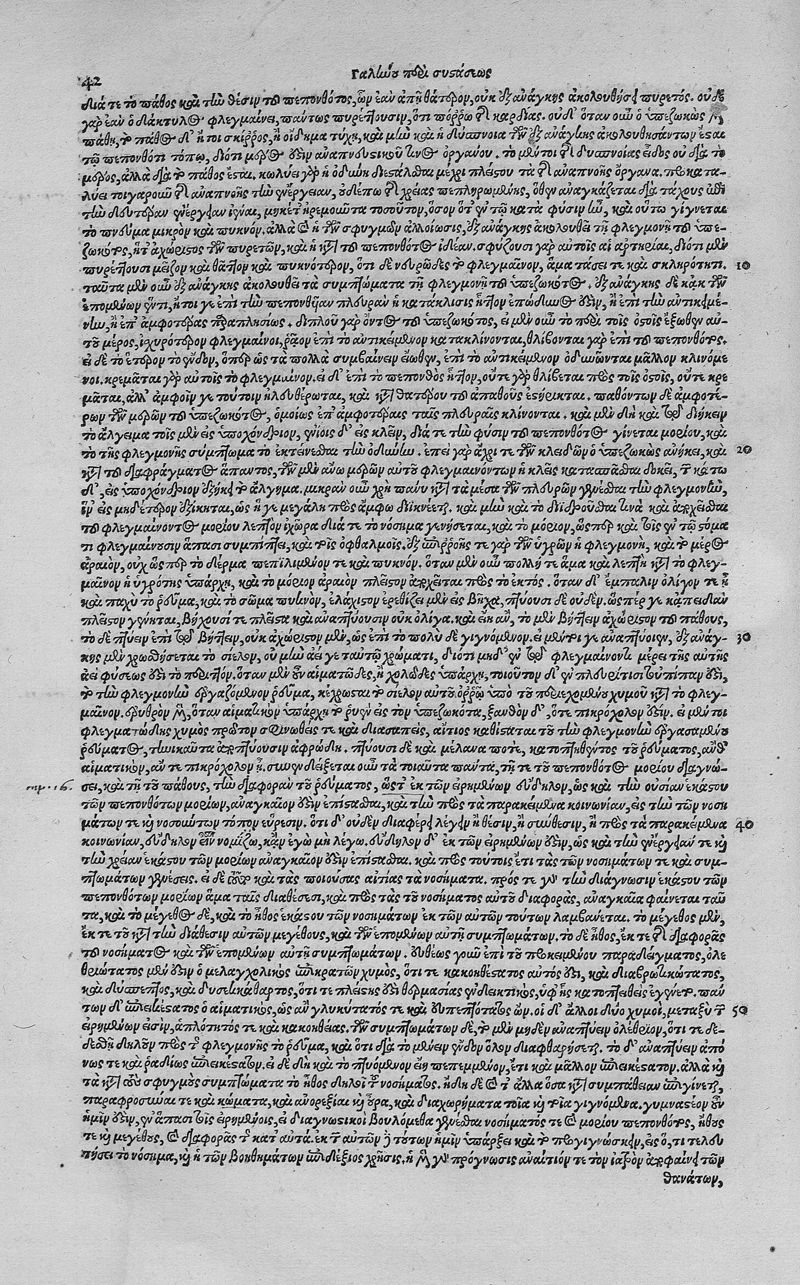 42
Γαλίωοῦ περὶ συστάσεως
διά τε τὸ πάθος καὶ τὴν θέσιν τοῦ πεπονθότος, ὧν ἐὰν ἀπῇ θάτερον, οὐκ ἐξ ἀνάγκης ἀκολουθήσει πυρετός. οὐδὲ
γὰρ ἐὰν ὁ δάκτυλος φλεγμαίνει, πάντως πυρέττουσιν, ὅτι πόρρω τῆς καρδίας. οὐδ' ὅταν οὖν ὁ ὑπεζωκὼς
πάθῃ, τὸ πάθος δ' ἤτοι σκίρρος, ἢ οἴδημα τύχῃ, καὶ μὴν καὶ ἡ δύσπνοια τῶν ἐξ ἀνάγκης ἀκολουθησάντων ἔσται
τῷ πεπονθότι τόπῳ, διότι μόριόν ἐστιν ἀναπνευστικοῦ τινος ὀργάνου. τὸ μέντοι τῆς δυσπνοίας εἶδος οὐ διὰ τὸ
μόριον, ἀλλὰ διὰ τὸ πάθος ἔσται. κωλύει γὰρ ἡ ὀδύνη διεσάλθαι μέχρι πλείστου τὰ τῆς ἀναπνοῆς ὄργανα. προκατα-
λύει τοιγαροῦν τῆς ἀναπνοῆς τὴν ἐνέργειαν, οὐδέπω τῆς χρείας πεπληρωμένης, ὅθεν ἀναγκάζεται διὰ τάχους ἐπὶ
τὴν δευτέραν ἐνέργειαν ἰέναι, μηκέτ' ἠρεμοῦντα τοσοῦτον, ὅσον ὅτ' ἐν τῷ κατὰ φύσιν ἦν, καὶ οὕτω γίγνεται
τὸ πνεῦμα μικρὸν καὶ πυκνόν. ἀλλὰ καὶ ἡ τῶν σφυγμῶν ἀλλοίωσις, ἐξ ἀνάγκης ἀκολουθεῖ τῇ φλεγμονῇ τοῦ ὑπε-
ζωκότος, ἥτ' ἀχώριστος τῶν πυρετῶν, καὶ ἡ κατὰ τοῦ πεπονθότος ἰδέαν. σφύζουσι γὰρ αὐτοῖς αἱ ἀρτηρίαι, διότι μὲν
πυρέττουσι μεῖζον καὶ θᾶττον καὶ πυκνότερον, ὅτι δὲ νευρῶδες τὸ φλεγμαῖνον, ἅμα τάσει τε καὶ σκληρότητι. 10
ταῦτα μὲν οὖν ἐξ ἀνάγκης ἀκολουθεῖ τὰ συμπτώματα τῇ φλεγμονῇ τοῦ ὑπεζωκότος. ἐξ ἀνάγκης δὲ κἀκ τῶν
ἑπομένων ἐντι, ἤτοι γε ἐπὶ τὴν πεπονθυῖαν πλευρὰν ἡ κατάκλισις ἧττον ἐπώδυνός ἐστιν, ἢ ἐπὶ τὴν ἀντικειμέ-
νην, ἢ ἐπ' ἀμφοτέρας παραπλησίως. διπλοῦ γὰρ ὄντος τοῦ ὑπεζωκότος, εἰ μὲν οὖν τὸ περὶ τοῖς ὀστοῖς ἔξωθεν αὐ-
τοῦ μέρος, ἰσχυρότερον φλεγμαίνοι, ῥᾷον ἐπὶ τὸ ἀντικείμενον κατακλίνονται, θλίβονται γὰρ ἐπὶ τοῦ πεπονθότος.
εἰ δὲ τὸ ἕτερον τὸ ἔνδον, ὅπερ ὡς τὰ πολλὰ συμβαίνειν εἴωθεν, ἐπὶ τὸ ἀντικείμενον ὀδυνῶνται μᾶλλον κλινόμε-
νοι. κρεμᾶται γὰρ αὐτοῖς τὸ φλεγμαῖνον. εἰ δ' ἐπὶ τὸ πεπονθὸς ἧττον, οὔτε γὰρ θλίβεται πρὸς τοῖς ὀστοῖς, οὔτε κρε
μᾶται, ἀλλ' ἀμφοῖν γε τούτοιν ἠλευθέρωται, καὶ κατὰ θατέρου τοῦ ἀπαθοῦς ἐστήρικται. παθόντων δὲ ἀμφοτέ-
ρων τῶν μερῶν τοῦ ὑπεζωκότος, ὁμοίως ἐπ' ἀμφοτέραις ταῖς πλευραῖς κλίνονται. καὶ μὲν δὴ καὶ τοῦ διήκειν
τὸ ἄλγειμα τοῖς μὲν εἰς ὑποχόνδριον, ἐνίοις δ' εἰς κλεῖν, διά τε τὴν φύσιν τοῦ πεπονθότος γίνεται μορίου, καὶ
τὸ τῆς φλεγμονῆς σύμπτωμα τὸ ἐκτείνεσθαι τὴν ὀδύνην. ἐπεὶ γὰρ ἄχρι τε τῶν κλειδῶν ὁ ὑπεζωκὼς ἀνήκει, καὶ 20
κατὰ τοῦ διαφράγματος ἅπαντος, τῶν μὲν ἄνω μερῶν αὐτοῦ φλεγμαινόντων ἡ κλεὶς κατασπᾶσθαι δοκεῖ, τῶν κάτω
δ', εἰς ὑποχόνδριον ἐξήκει τὸ ἄλγημα. μικρὰν οὖν χρὴ πάνυ κατὰ τὰ μέσα τῶν πλευρῶν γίνεσθαι τὴν φλεγμονὴν,
ἵν' εἰς μηδέτερον ἐξίκηται, ὡς ἥ γε μεγάλη πρὸς ἄμφω διϊκνεῖται. καὶ μὴν καὶ τὸ διϊδροῦσθαί τινα καὶ ἀρχεῖσθαι
τοῦ φλεγμαίνοντος μορίου λεπτὸν ἰχῶρα διά τε τὸ νόσημα γενήσεται, καὶ τὸ μόριον, ὥσπερ καὶ τοῖς ἐν τῷ στόμα
τι φλεγμαίνουσιν ἅπασι συμπίπτει, καὶ τοῖς ὀφθαλμοῖς. ἐξ ἐπιρροῆς τε γὰρ τῶν ὑγρῶν ἡ φλεγμονή, καὶ τὸ μέρος
ἀραιόν, οὐχ ὥσπερ τὸ δέρμα πεπιλημένον τε καὶ πυκνόν. ὅταν μὲν οὖν πολλή τε ἅμα καὶ λεπτὴ κατὰ τὸ φλεγ-
μαῖνον ἡ ὑγρότης ὑπάρχῃ, καὶ τὸ μόριον ἀραιὸν πλεῖστον ἀρχεῖται πρὸς τὸ ἐκτός. ὅταν δ' ἔμπαλιν ὀλίγον τε ᾖ
καὶ παχὺ τὸ ῥεῦμα, καὶ τὸ σῶμα πυκνὸν, ἐλάχιστον ἐρεθίζει μὲν εἰς βῆχα, πτύουσι δὲ οὐδέν. ὥσπέρ γε κἀπειδὰν
πλεῖστον γένηται, βήχουσί τε πλεῖστα καὶ ἀναπτύουσιν οὐκ ὀλίγα. καὶ εἴη ἂν, τὸ μὲν βήττειν ἀχώριστον τοῦ πάθους,
τὸ δὲ πτύειν ἐπὶ τῷ βήττειν, οὐκ ἀχώριστον μὲν, ὡς ἐπὶ τὸ πολὺ δὲ γιγνόμενον. εἰ μέντοι γε ἀναπτύοιεν, ἐξ ἀνάγ- 30
κης μὲν χρωσθήσεται τὸ σίελον, οὐ μὴν ἀεί γε ταὐτῷ χρώματι, διότι μηδ' ἐν τῷ φλεγμαίνοντι μέρει τῆς αὐτῆς
ἀεὶ φύσεως ἐστὶ τὸ περιττόν. ὅταν μὲν οὖν αἱματῶδες, ἢ χολῶδες ὑπάρχῃ, τοιοῦτον δ' ἐν πλευρίτισι τοὐπίπαν ἐστί,
τὸ τὴν φλεγμονὴν ἐργαζόμενον ῥεῦμα, κέχρωσται τὸ σίελον αὐτοῦ ὀρρῷ ὑπὸ τοῦ περιεχομένου χυμοῦ κατὰ τὸ φλεγ-
μαῖνον. ἐρυθρὸν μὲν, ὅταν αἱματικὸν ὑπάρχῃ τὸ ῥυὲν εἰς τὸν ὑπεζωκότα, ξανθὸν δ', ὅτε πικρόχολόν ἐστιν. εἰ μέντοι
φλεγματώδης χυμὸς πρῶτον σφηνωθείς τε καὶ διασαπείς, αἴτιος καθίσταται τοῦ τὴν φλεγμονὴν ἐργασαμένου
ῥεύματος, τηνικαῦτα ἀναπτύουσιν ἀφρώδη. πτύουσι δὲ καὶ μέλανά ποτε, κατοπτηθέντος τοῦ ῥεύματος, ἄνθ'
αἱματικὸν, ἄν τε πικρόχολον ᾖ. συνενδείξεται οὖν τὰ τοιαῦτα πάντα, τῇ τε τοῦ πεπονθότος μορίου διαγνώ-
σει, καὶ τῇ τοῦ πάθους, τὴν διαφορὰν τοῦ ῥεύματος, ὥστ' ἐκ τῶν εἰρημένων εὔδηλον, ὡς καὶ τὴν οὐσίαν ἑκάστου
τῶν πεπονθότων μορίων, ἀναγκαῖόν ἐστιν ἐπίστασθαι, καὶ τὴν πρὸς τὰ παρακείμενα κοινωνίαν, εἰς τὴν τῶν νοση
μάτων τε καὶ νοσούντων τόπων εὕρεσιν. ὅτι δ' οὐδὲν διαφέρει λέγειν ἢ θέσιν, ἢ σύνθεσιν, ἢ πρὸς τὰ παρακείμενα 40
κοινωνίαν, εὔδηλον εἶναι νομίζω, κἂν ἐγὼ μὴ λέγω. εὔδηλον δ' ἐκ τῶν εἰρημένων ἐστίν, ὡς καὶ τὴν ἐνέργειάν τε καὶ
τὴν χρείαν ἑκάστου τῶν μορίων ἀναγκαῖόν ἐστιν ἐπίστασθαι. καὶ πρὸς τούτοις ἔτι τὰς τῶν νοσημάτων τε καὶ συμ-
πτωμάτων γενέσεις. εἰ δὲ τοῦτο καὶ τὰς ποιούσας αἰτίας τὰ νοσήματα. πρός τε γὰρ τὴν διάγνωσιν ἑκάστου τῶν
πεπονθότων μορίων ἅμα ταῖς διαθέσεσι, καὶ πρὸς τὰς τοῦ νοσήματος αὐτοῦ διαφορὰς, ἀναγκαῖα φαίνεται ταῦ
τα, καὶ τὸ μέγεθος δὲ, καὶ τὸ ἦθος ἑκάστου τῶν νοσημάτων ἐκ τῶν αὐτῶν τούτων λαμβάνεται. τὸ μέγεθος μὲν,
ἔκ τε τοῦ κατὰ τὴν διάθεσιν αὐτῶν μεγέθους, καὶ τῶν ἑπομένων αὐτῇ συμπτωμάτων. τὸ δὲ ἦθος, ἔκ τε τῆς διαφορᾶς
τοῦ νοσήματος καὶ τῶν ἑπομένων αὐτῇ συμπτωμάτων. εὐθέως γοῦν ἐπὶ τοῦ προκειμένου παραδείγματος, ὀλε
θριώτατος μέν ἐστιν ὁ μελαγχολικὸς ἐπικρατῶν χυμός, ὅτι τε κακοηθέστατος αὐτός ἐστι, καὶ διαβρωτικώτατος,
καὶ δύσπεπτος, καὶ δυσεκκάθαρτος, ὅτι τε πλείστης ἐστὶ θερμασίας ἐνδεικτικός, ὑφ' ἧς κατοπτηθεὶς ἐγένετο. πάν
των δ' ἐπιεικέστατος ὁ αἱματικός, ὡς ἂν γλυκύτατός τε καὶ εὐπεπτότατος ὤν. οἱ δ' ἄλλοι δύο χυμοὶ, μεταξὺ τῶν 50
εἰρημένων εἰσὶν, ἁπλότητός τε καὶ κακοηθείας. τῶν συμπτωμάτων δὲ, τὸ μὲν μηδὲν ἀναπτύειν ὀλέθριον, ὅτι τε δέ-
δεσθαι δηλοῖ πρὸς τῆς φλεγμονῆς τὸ ῥεῦμα, καὶ ὅτι διὰ τὸ μένειν ἔνδον ὅλον διαφθαρήσεται. τὸ δ' ἀναπτύειν ἀπό
νως τε καὶ ῥαδίως ἐπιεικέστατον. εἰ δὲ δὴ καὶ τὸ πτυόμενον εἴη πεπεμμένον, ἔτι καὶ μᾶλλον ἐπιεικέστατον. ἀλλὰ καὶ
τὰ κατὰ τοὺς σφυγμοὺς συμπτώματα τὸ ἦθος δηλοῖ τοῦ νοσήματος. ἤδη δὲ καὶ τἄλλα ὅσα κατὰ συμπάθειαν ἐπιγίνεται,
παραφροσύναι τε καὶ κώματα, καὶ ἀνορεξίαι καὶ οὖρα, καὶ διαχωρήματα ποῖα καὶ ποῖα γιγνόμενα. γυμναστέον οὖν
ἡμῖν ἐστὶν, ἐν ἅπασι τοῖς εἰρημένοις, εἰ διαγνωστικοὶ βουλόμεθα γενέσθαι νοσήματός τε καὶ μορίου πεπονθότος, ἤθους
τε καὶ μεγέθους, καὶ διαφορᾶς τῆς κατ' αὐτά. ἐκ τῶν αὐτῶν γὰρ τούτων ἡμῖν ὑπάρξει καὶ τὸ προγιγνώσκειν, εἰς ὅ,τι τελευ
τήσει τὸ νόσημα, καὶ ἡ τῶν βοηθημάτων ἐπιδέξιος χρῆσις. ἡ μὲν γὰρ πρόγνωσις ἀναίτιόν τε τὸν ἰατρὸν ἀποφαίνει τῶν
θανάτων,